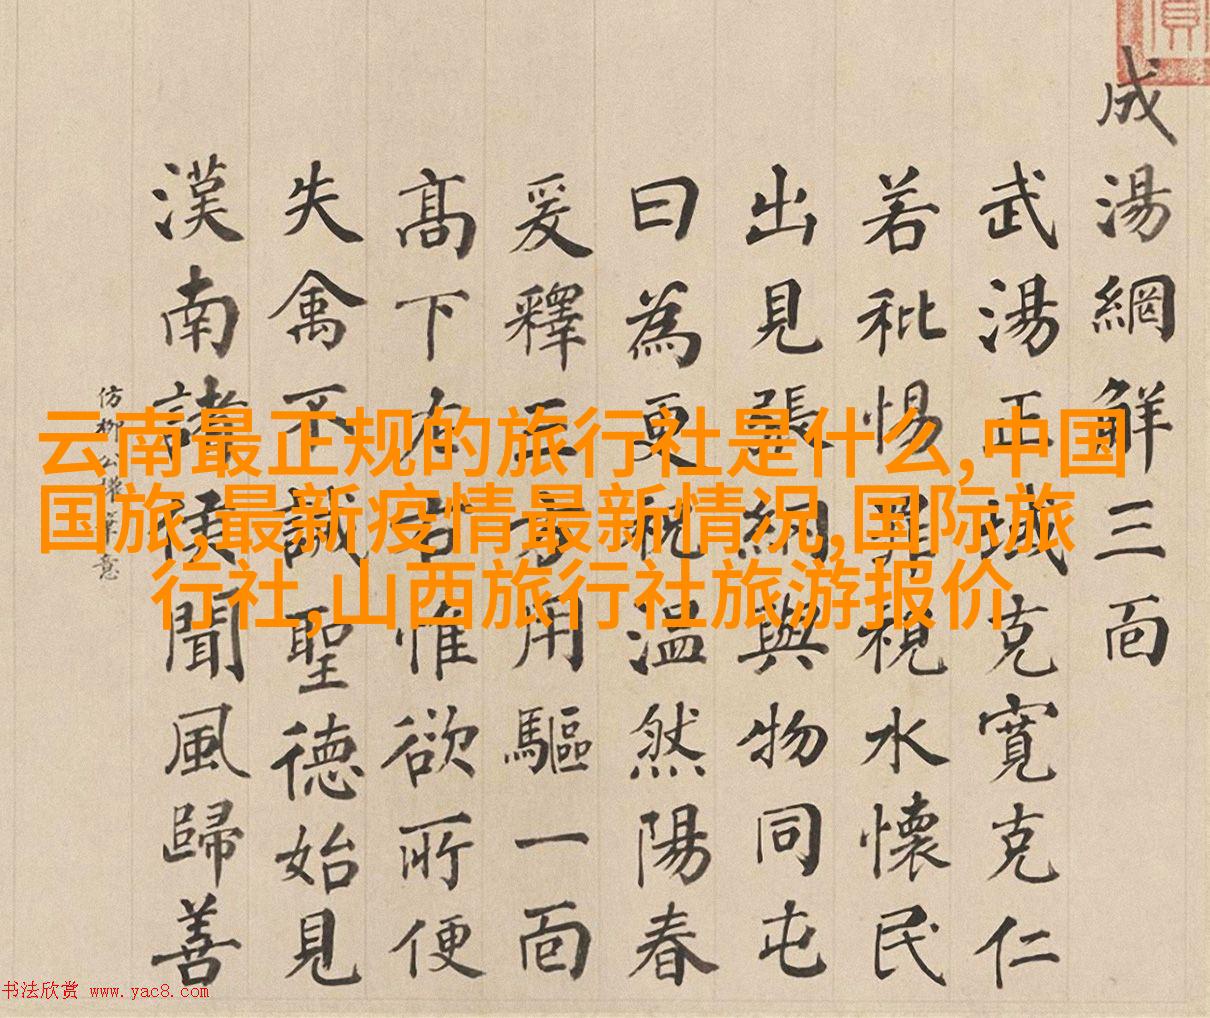 成湯網觧三面
武湯正域克寬克仁
若秕惕視水懷民
出見張網與物同屯
曰為更祝温然陽春
爰釋三方用驅一面
髙下左右惟欲所便
失禽不誡聖德始見
漢南諸侯聞風歸善
仿柳公權筆意
云南最正规的旅行社是什么,中国
国旅,最新疫情最新情况,国际旅
行社,山西旅行社旅游报价
书法欣赏 www.yac8.com